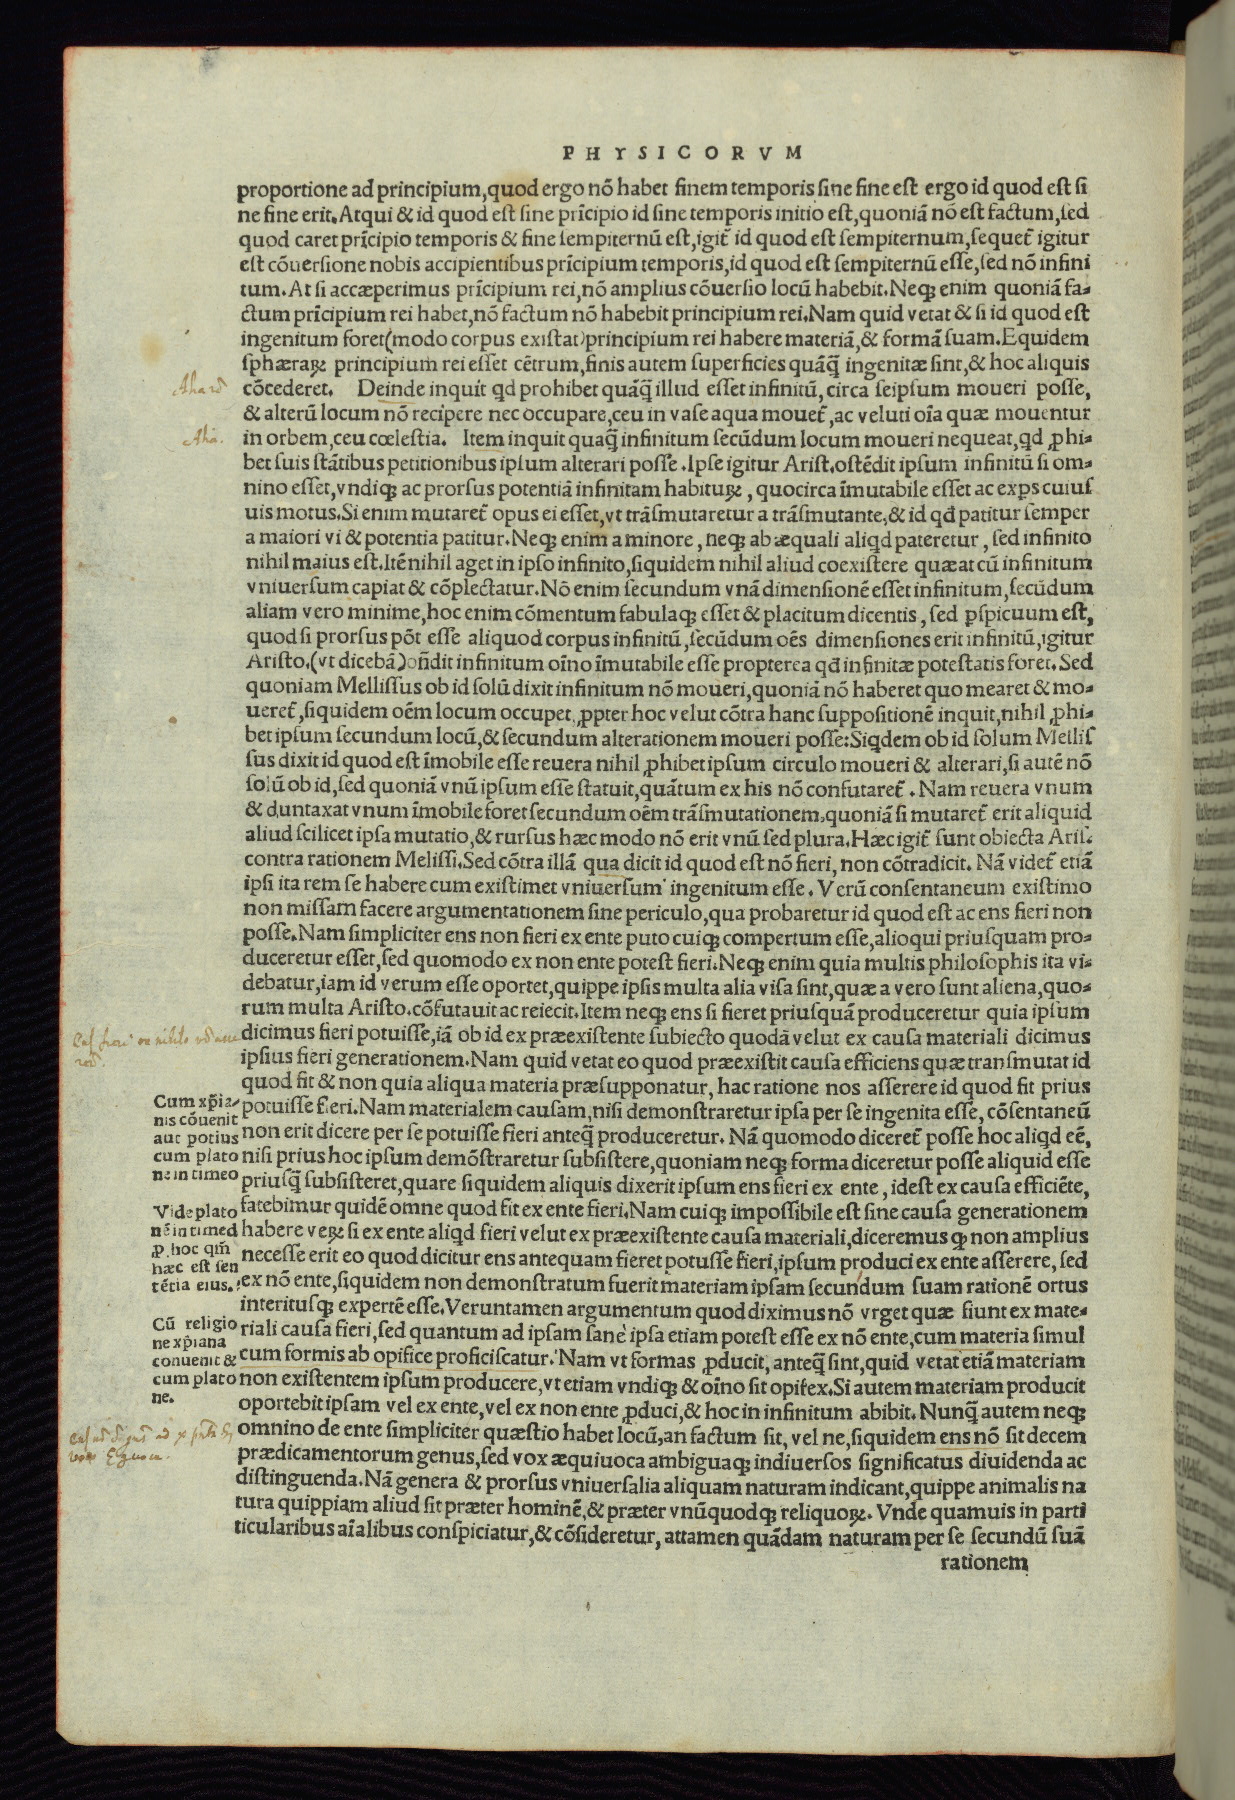 PHYSICORVM
proportione ad principium,quod ergo nõ habet finem temporis sine fine est ergo id quod est si
ne fine erit.Atqui & id quod est sine prĩcipio id sine temporis initio est,quoniã nõ est factum,sed
quod caret prĩcipio temporis & fine sempiternũ est,igit̃ id quod est sempiternum,sequet̃ igitur
est cõuersione nobis accipientibus prĩcipium temporis,id quod est sempiternũ esse,sed nõ infini
tum.At si accæperimus prĩcipium rei,nõ amplius cõuersio locũ habebit.Neqꝫ enim quoniã fa-
ctum prĩcipium rei habet,nõ factum nõ habebit principium rei.Nam quid vetat & si id quod est
ingenitum foret(modo corpus existat)principium rei habere materiã,& formã suam.Equidem
sphæraꝝ principium rei esset cẽtrum,finis autem superficies quãq̃ ingenitæ sint,& hoc aliquis
cõcederet. Deinde inquit qd prohibet quãq̃ illud esset infinitũ, circa seipsum moueri posse,
& alterũ locum nõ recipere nec occupare,ceu in vase aqua mouet̃, ac veluti oĩa quæ mouentur
in orbem,ceu cœlestia. Item inquit quaq̃ infinitum secũdum locum moueri nequeat,qd ꝓhi-
bet suis stãtibus petitionibus ipsum alterari posse.Ipse igitur Arist.ostẽdit ipsum infinitũ si om-
nino esset,vndiqꝫ ac prorsus potentiã infinitam habituꝝ, quocirca ĩmutabile esset ac exps cuius
uis motus.Si enim mutaret̃ opus ei esset,vt trãsmutaretur a trãsmutante,& id qd patitur semper
a maiori vi & potentia patitur.Neqꝫ enim a minore, neqꝫ ab æquali aliqd pateretur, sed infinito
nihil maius est.Itẽ nihil aget in ipso infinito,siquidem nihil aliud coexistere quæat cũ infinitum
vniuersum capiat & cõplectatur.Nõ enim secundum vnã dimensionẽ esset infinitum,secũdum
aliam vero minime,hoc enim cõmentum fabulaqꝫ esset & placitum dicentis, sed ꝑspicuum est,
quod si prorsus põt esse aliquod corpus infinitũ,secũdum oẽs dimensiones erit infinitũ,igitur
Aristo.(vt dicebã)oñdit infinitum oĩno ĩmutabile esse propterea qd infinitæ potestatis foret.Sed
quoniam Mellissus ob id solũ dixit infinitum nõ moueri,quoniã nõ haberet quo mearet & mo-
ueret̃,siquidem oẽm locum occupet,ꝓpter hoc velut cõtra hanc suppositionẽ inquit,nihil ꝓhi-
bet ipsum secundum locũ,& secundum alterationem moueri posse:Siqdem ob id solum Mellis
sus dixit id quod est ĩmobile esse reuera nihil ꝓhibet ipsum circulo moueri & alterari,si autẽ nõ
solũ ob id,sed quoniã vnũ ipsum esse statuit,quãtum ex his nõ confutaret̃. Nam reuera vnum
& duntaxat vnum ĩmobile foret secundum oẽm trãsmutationem,quoniã si mutaret̃ erit aliquid
aliud scilicet ipsa mutatio,& rursus hæc modo nõ erit vnũ sed plura.Hæc igit̃ sunt obiecta Aris.
contra rationem Melissi.Sed cõtra illã qua dicit id quod est nõ fieri, non cõtradicit. Nã videt̃ etiã
ipsi ita rem se habere cum existimet vniuersum ingenitum esse. Verũ consentaneum existimo
non missam facere argumentationem sine periculo,qua probaretur id quod est ac ens fieri non
posse.Nam simpliciter ens non fieri ex ente puto cuiqꝫ compertum esse,alioqui priusquam pro-
duceretur esset,sed quomodo ex non ente potest fieri.Neqꝫ enim quia multis philosophis ita vi-
debatur,iam id verum esse oportet,quippe ipsis multa alia visa sint,quæ a vero sunt aliena,quo-
rum multa Aristo.cõfutauit ac reiecit.Item neqꝫ ens si fieret priusquã produceretur quia ipsum
dicimus fieri potuisse,iã ob id ex præexistente subiecto quodã velut ex causa materiali dicimus
ipsius fieri generationem.Nam quid vetat eo quod præexistit causa efficiens quæ transmutat id
quod fit & non quia aliqua materia præsupponatur, hac ratione nos asserere id quod fit prius
potuisse fieri.Nam materialem causam,nisi demonstraretur ipsa per se ingenita esse, cõsentaneũ
non erit dicere per se potuisse fieri anteq̃ produceretur. Nã quomodo diceret̃ posse hoc aliqd eẽ,
nisi prius hoc ipsum demõstraretur subsistere,quoniam neqꝫ forma diceretur posse aliquid esse
priusq̃ subsisteret,quare siquidem aliquis dixerit ipsum ens fieri ex ente, idest ex causa efficiẽte,
fatebimur quidẽ omne quod fit ex ente fieri.Nam cuiqꝫ impossibile est sine causa generationem
habere veꝝ si ex ente aliqd fieri velut ex præexistente causa materiali,diceremus ꝙ non amplius
necesse erit eo quod dicitur ens antequam fieret potusse fieri,ipsum produci ex ente asserere, sed
ex nõ ente,siquidem non demonstratum fuerit materiam ipsam secundum suam rationẽ ortus
interitusqꝫ expertẽ esse.Veruntamen argumentum quod diximus nõ vrget quæ fiunt ex mate-
riali causa fieri,sed quantum ad ipsam sane ipsa etiam potest esse ex nõ ente,cum materia simul
cum formis ab opifice proficiscatur. Nam vt formas ꝓducit, anteq̃ sint, quid vetat etiã materiam
non existentem ipsum producere,vt etiam vndiqꝫ & oĩno sit opifex.Si autem materiam producit
oportebit ipsam vel ex ente,vel ex non ente ꝓduci,& hoc in infinitum abibit. Nunq̃ autem neqꝫ
omnino de ente simpliciter quæstio habet locũ,an factum sit, vel ne,siquidem ens nõ sit decem
prædicamentorum genus,sed vox æquiuoca ambiguaqꝫ indiuersos significatus diuidenda ac
distinguenda.Nã genera & prorsus vniuersalia aliquam naturam indicant,quippe animalis na
tura quippiam aliud sit præter hominẽ,& præter vnũquodqꝫ reliquoꝝ. Vnde quamuis in parti
ticularibus aĩalibus conspiciatur,& cõsideretur, attamen quãdam naturam per se secundũ suã
rationem
Cum xp̃ia-
nis cõuenit
aut potius
cum plato
ne in timeo
Vide plato
nẽ in timeo
ꝓ hoc qm̃
hæc est sen
tẽtia eius.
Cũ religio
ne xp̃iana
conuenit &
cum plato
ne.